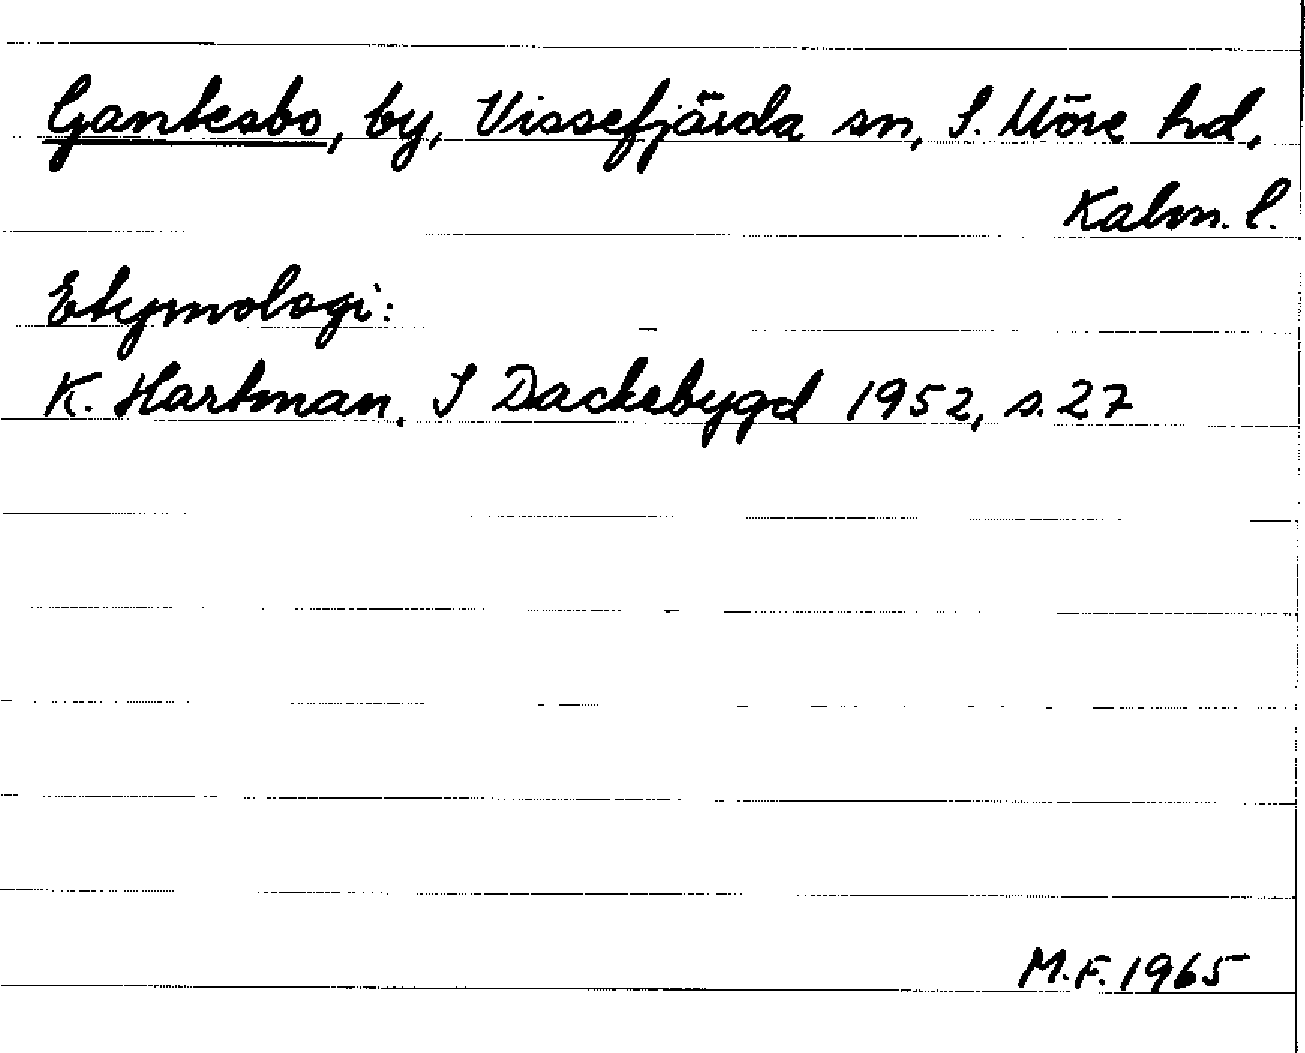 Gantesbo, by, Vissefjärda sn, S. Möre hd,
Kalm. l.
Etymologi:
K. Hartman, I Dackebygd 1952, s. 27
M.F. 1965